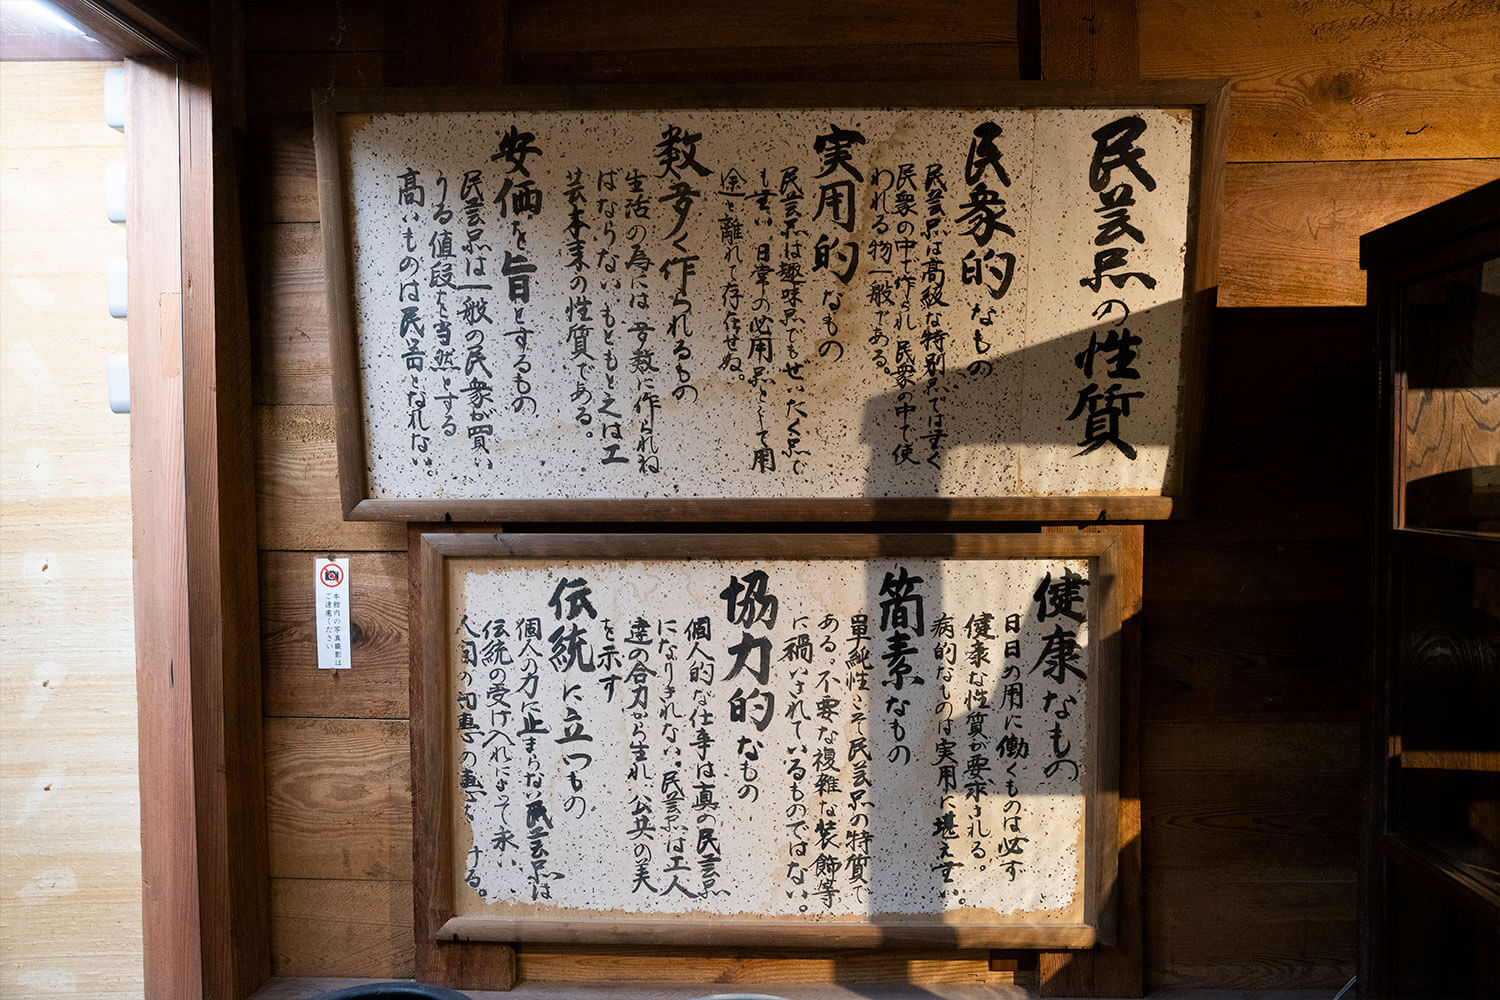 民芸品の性質
民衆的なもの
民芸品は高級な特別品ではなく
民衆の中で作られ民衆の中で使
われる物一般である。
実用的なもの
民芸品は趣味品でもぜいたく品で
も無い 日常の必用品として用
途を離れて存在せぬ。
数多く作られるもの
生活の為には多数に作られね
ばならない もともと之は工
芸本来の性質である。
安価を旨とするもの
民芸品は一般の民衆が買い
うる値段を当然とする
高いものは民芸となれない。
健康なもの
日日の用に働くものは必ず
健康な性質が要求される。
病的なものは実用に堪え無い。
簡素なもの
単純性こそ民芸品の特質で
ある。不要な複雑な装飾等
に禍いされているものではない。
協力的なもの
個人的な仕事は真の民芸品
になりきれない。民芸品は工人
達の合力から生れ 公共の美
を示す
伝統に立つもの
個人の力に止まらない民芸品は
伝統の受け入れによって永い
人間の知恵の恵 ける。
本館内の写真撮影は
ご遠慮ください